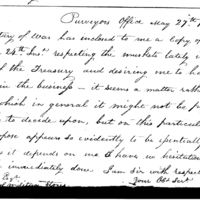 Purveyors Office May 27th
tery of War has enclosed to me a Copy of
24th Inst. respecting the muskets lately
of the Treasury and desiring me to ha
in the business – it seems a matter rath
which in general it might not be p
to decide upon, but on this particul
pose appears so evidently to be
it depends on me I have no hesitation
immediately done. I am Sir with respect
Esqr. Your Obt. Servt.
Military Stores